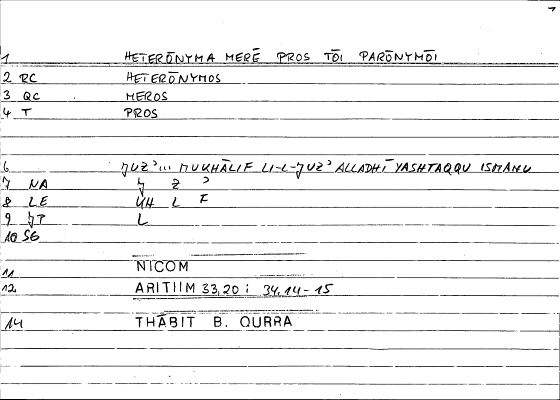 1 HETERŌNYMA MERĒ PROS TŌI PARŌNYMŌI
2 RC HETERŌNYMOS
3 QC MEROS
4 T PROS
6 ǦUZʾ... MUKHĀLIF LI-L-ǦUZʾ ALLADHĪ YASHTAQQU ISMAHU
7 NA Ǧ Z ʾ
8 LE KH L F
9 ǦT L
10 SG
11 NICOM
12 ARITIIM 33,20 ; 34,14-15
14 THĀBIT B. QURRA